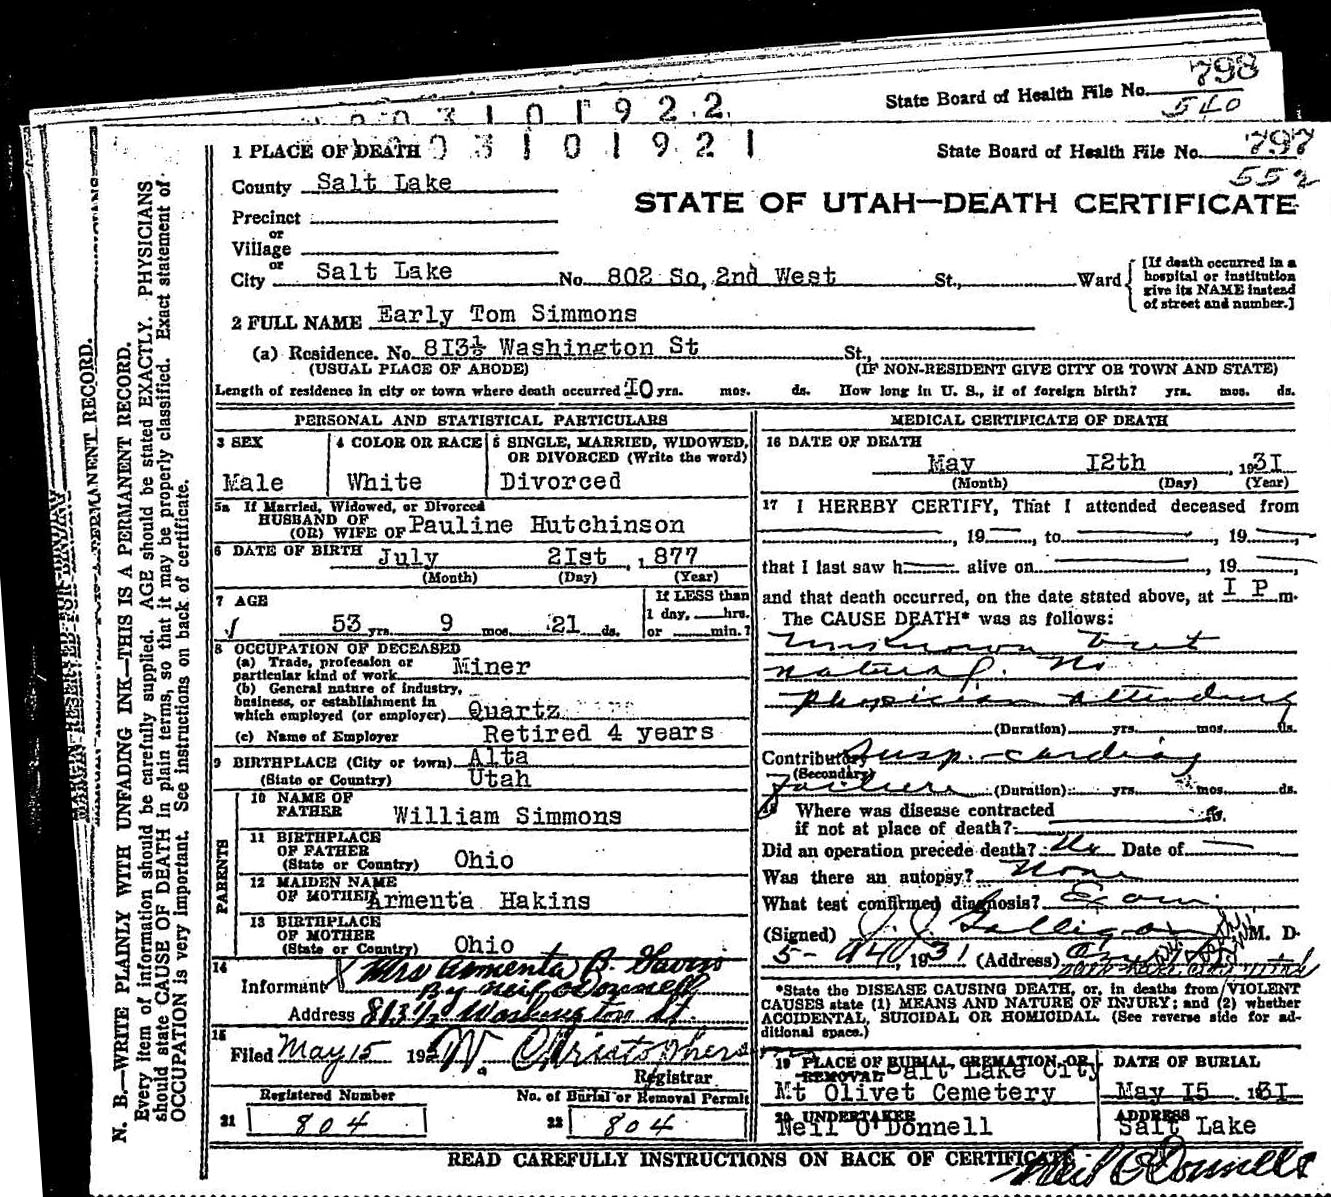 798
State Board of Health File No.
540
0 0 3 1 0 1 9 2 2
0 0 3 1 0 1 9 2 1
797
State Board of Health File No.
552
1 PLACE OF DEATH
County Salt Lake
STATE OF UTAH—DEATH CERTIFICATE
Precinct
or
Village
or
City Salt Lake No. 802 So, 2nd West St., Ward
[If death occurred in a
hospital or institution
give its NAME instead
of street and number.]
2 FULL NAME Early Tom Simmons
(a) Residence. No. 8I3½ Washington St St.,
(USUAL PLACE OF ABODE) (IF NON-RESIDENT GIVE CITY OR TOWN AND STATE)
Length of residence in city or town where death occurred I0 yrs. mos. ds. How long in U. S., if of foreign birth? yrs. mos. ds.
PERSONAL AND STATISTICAL PARTICULARS
3 SEX
Male
4 COLOR OR RACE
White
5 SINGLE, MARRIED, WIDOWED,
OR DIVORCED (Write the word)
Divorced
5a If Married, Widowed, or Divorced
HUSBAND OF
(OR) WIFE OF Pauline Hutchinson
6 DATE OF BIRTH July 2Ist , 1877
(Month) (Day) (Year)
7 AGE
53 yrs. 9 mos. 21 ds.
If LESS than
1 day, hrs.
or min.?
8 OCCUPATION OF DECEASED
(a) Trade, profession or
particular kind of work Miner
(b) General nature of industry,
business, or establishment in
which employed (or employer) Quartz
(c) Name of Employer Retired 4 years
9 BIRTHPLACE (City or town) Alta
(State or Country) Utah
PARENTS
10 NAME OF
FATHER William Simmons
11 BIRTHPLACE
OF FATHER
(State or Country) Ohio
12 MAIDEN NAME
OF MOTHER Armenta Hakins
13 BIRTHPLACE
OF MOTHER
(State or Country) Ohio
14
Informant Mrs Armenta B.
By Neil O'Donnell
Address 813½ Washington St.
15
Filed May 15 193 W. Christophers
Registrar
Registered Number
21 804
No. of Burial or Removal Permit
22 804
MEDICAL CERTIFICATE OF DEATH
16 DATE OF DEATH
May I2th , 193I
(Month) (Day) (Year)
17 I HEREBY CERTIFY, That I attended deceased from
, 19 , to , 19 ,
that I last saw h alive on , 19 ,
and that death occurred, on the date stated above, at I P m.
The CAUSE DEATH* was as follows:
Unknown but
natural. No
physician attending
(Duration) yrs. mos. ds.
Contributory Susp. cardiac
(Secondary)
failure (Duration) yrs. mos. ds.
18 Where was disease contracted
if not at place of death?
Did an operation precede death? No Date of
Was there an autopsy? None
What test confirmed diagnosis? Exam
(Signed) J. J. Galligan M. D.
5- 1931 (Address)
*State the DISEASE CAUSING DEATH, or, in deaths from VIOLENT
CAUSES state (1) MEANS AND NATURE OF INJURY; and (2) whether
ACCIDENTAL, SUICIDAL OR HOMICIDAL. (See reverse side for ad-
ditional space.)
19 PLACE OF BURIAL, CREMATION, OR
REMOVAL Salt Lake City
Mt Olivet Cemetery
DATE OF BURIAL
May I5 , 193I
20 UNDERTAKER
Neil O'Donnell
ADDRESS
Salt Lake
READ CAREFULLY INSTRUCTIONS ON BACK OF CERTIFICATE
Neil O'Donnell
N. B.—WRITE PLAINLY WITH UNFADING INK—THIS IS A PERMANENT RECORD.
Every item of information should be carefully supplied. AGE should be stated EXACTLY. PHYSICIANS
should state CAUSE OF DEATH in plain terms, so that it may be properly classified. Exact statement of
OCCUPATION is very important. See instructions on back of certificate.
MARGIN RESERVED FOR BINDING
PERMANENT RECORD.